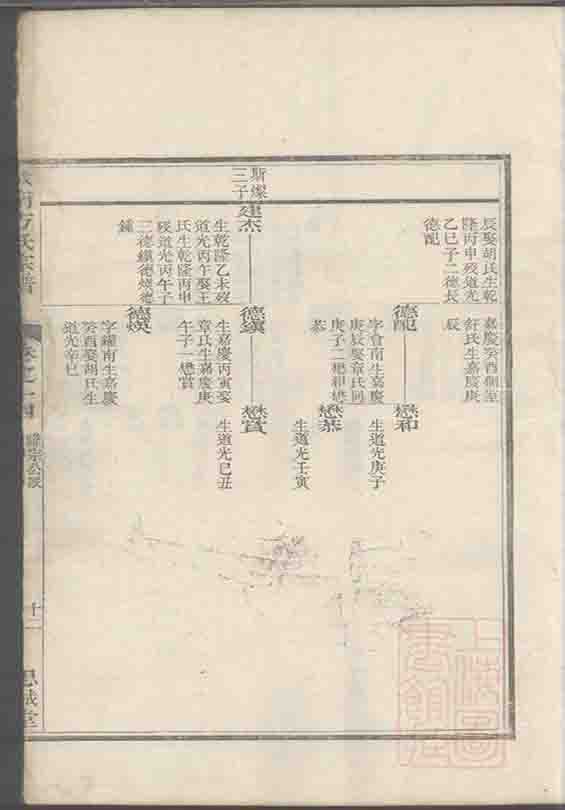 辰娶胡氏生乾
隆丙申歿道光
乙巳子二德長
德配
嘉慶癸酉側室
舒氏生嘉慶庚
辰
德配
字會南生嘉慶
庚辰娶章氏同
庚子二懋和懋
恭
懋和
生道光庚子
懋恭
生道光壬寅
斯燦
三子
建杰
生乾隆乙未歿
道光丙午娶王
氏生乾隆丙申
歿道光丙午子
三德鎮德煐德
鍾
德鎮
生嘉慶丙寅娶
章氏生嘉慶庚
午子一懋賞
懋賞
生道光己丑
德煐
字鍾南生嘉慶
癸酉娶胡氏生
道光辛巳
方氏宗譜
卷之十四
宗公派
十二
思誠堂
上海圖
書館藏